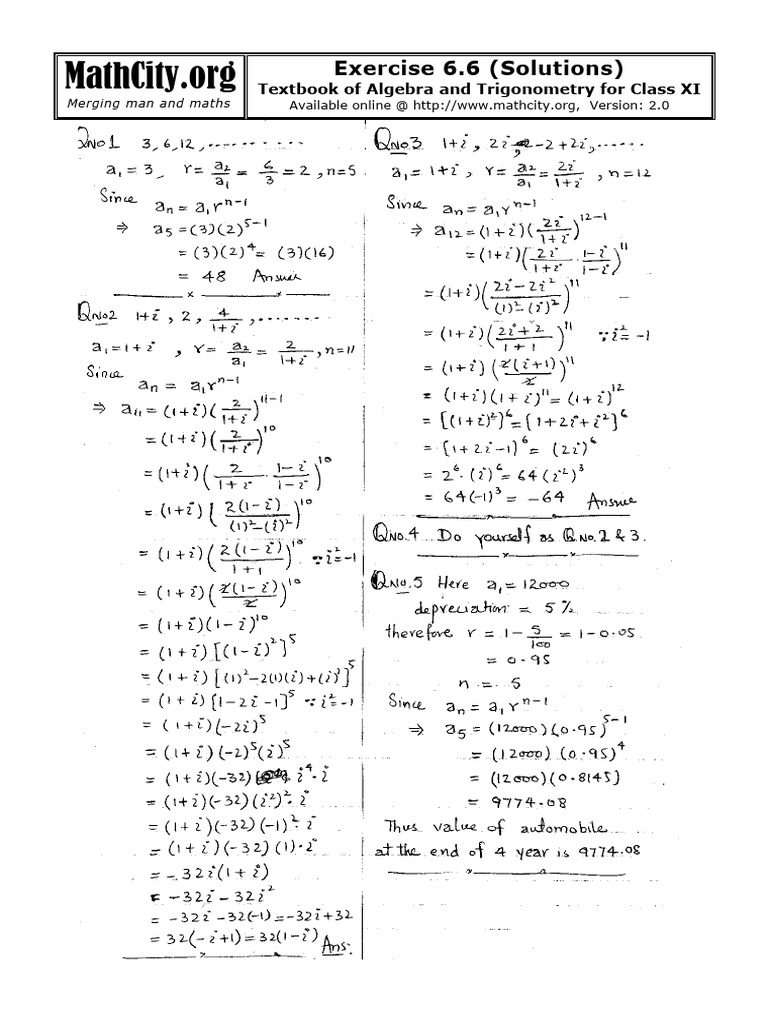 MathCity.org
Merging man and maths
Exercise 6.6 (Solutions)
Textbook of Algebra and Trigonometry for Class XI
Available online @ http://www.mathcity.org, Version: 2.0
QNo1 3, 6, 12, ........
a₁ = 3, r = a₂/a₁ = 6/3 = 2, n=5
Since aₙ = a₁rⁿ⁻¹
⇒ a₅ = (3)(2)⁵⁻¹
= (3)(2)⁴ = (3)(16)
= 48 Answer
QNo2 1+i, 2, 4/(1+i), .......
a₁ = 1+i, r = a₂/a₁ = 2/(1+i), n=11
Since
aₙ = a₁rⁿ⁻¹
⇒ a₁₁ = (1+i)(2/(1+i))¹¹⁻¹
= (1+i)(2/(1+i))¹⁰
= (1+i)(2/(1+i) · (1-i)/(1-i))¹⁰
= (1+i)(2(1-i)/((1)²-(i)²))¹⁰
= (1+i)(2(1-i)/(1+1))¹⁰ ∵ i²=-1
= (1+i)(2(1-i)/2)¹⁰
= (1+i)(1-i)¹⁰
= (1+i)[(1-i)²]⁵
= (1+i)[(1)²-2(1)(i)+(i)²]⁵
= (1+i)[1-2i-1]⁵ ∵ i²=-1
= (1+i)(-2i)⁵
= (1+i)(-2)⁵(i)⁵
= (1+i)(-32) i⁴·i
= (1+i)(-32)(i²)²·i
= (1+i)(-32)(-1)²·i
= (1+i)(-32)(1)·i
= -32i(1+i)
= -32i-32i²
= -32i-32(-1) = -32i+32
= 32(-i+1) = 32(1-i) Ans:
QNo3 1+i, 2i, -2+2i, ......
a₁ = 1+i, r = a₂/a₁ = 2i/(1+i), n=12
Since aₙ = a₁rⁿ⁻¹
⇒ a₁₂ = (1+i)(2i/(1+i))¹²⁻¹
= (1+i)(2i/(1+i) · (1-i)/(1-i))¹¹
= (1+i)((2i-2i²)/((1)²-(i)²))¹¹
= (1+i)((2i+2)/(1+1))¹¹ ∵ i²=-1
= (1+i)(2(i+1)/2)¹¹
= (1+i)(1+i)¹¹ = (1+i)¹²
= [(1+i)²]⁶ = [1+2i+i²]⁶
= [1+2i-1]⁶ = (2i)⁶
= 2⁶·(i)⁶ = 64(i²)³
= 64(-1)³ = -64 Answer
QNo.4 Do yourself as Q.No.2 & 3.
QNo.5 Here a₁ = 12000
depreciation = 5%
therefore r = 1 - 5/100 = 1-0.05
= 0.95
n = 5
Since aₙ = a₁rⁿ⁻¹
⇒ a₅ = (12000)(0.95)⁵⁻¹
= (12000)(0.95)⁴
= (12000)(0.8145)
= 9774.08
Thus value of automobile
at the end of 4 year is 9774.08